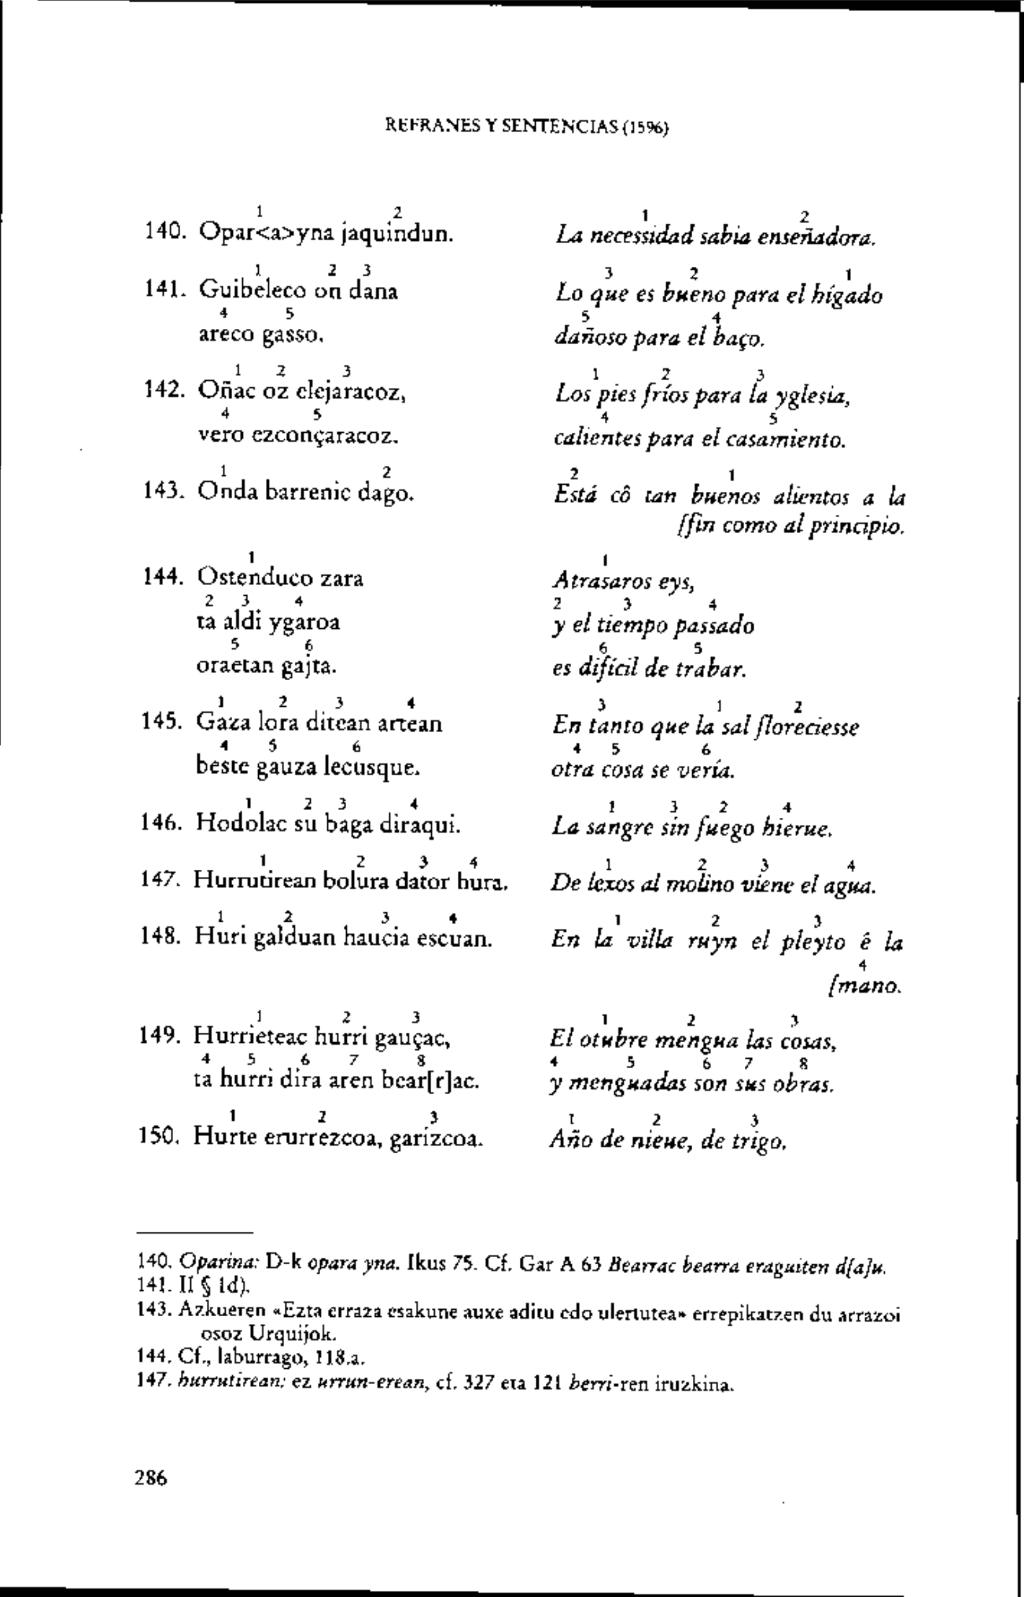 REFRANES Y SENTENCIAS (1596)
1 2
140. Opar<a>yna jaquindun.
1 2
La necessidad sabia enseñadora.
1 2 3
141. Guibeleco on dana
4 5
areco gasso.
3 2 1
Lo que es bueno para el hígado
5 4
dañoso para el baço.
1 2 3
142. Oñac oz elejaracoz,
4 5
vero ezconçaracoz.
1 2 3
Los pies fríos para la yglesia,
4 5
calientes para el casamiento.
1 2
143. Onda barrenic dago.
2 1
Está cô tan buenos alientos a la
[fin como al principio.
1
144. Ostenduco zara
2 3 4
ta aldi ygaroa
5 6
oraetan gajta.
1
Atrasaros eys,
2 3 4
y el tiempo passado
6 5
es difícil de trabar.
1 2 3 4
145. Gaza lora ditean artean
4 5 6
beste gauza lecusque.
3 1 2
En tanto que la sal floreciesse
4 5 6
otra cosa se vería.
1 2 3 4
146. Hodolac su baga diraqui.
1 3 2 4
La sangre sin fuego hierue.
1 2 3 4
147. Hurrutirean bolura dator hura.
1 2 3 4
De lexos al molino viene el agua.
1 2 3 4
148. Huri galduan haucia escuan.
1 2 3
En la villa ruyn el pleyto ê la
4
[mano.
1 2 3
149. Hurrieteac hurri gauçac,
4 5 6 7 8
ta hurri dira aren bear[r]ac.
1 2 3
El otubre mengua las cosas,
4 5 6 7 8
y menguadas son sus obras.
1 2 3
150. Hurte erurrezcoa, garizcoa.
1 2 3
Año de nieue, de trigo.
140. Oparina: D-k opara yna. Ikus 75. Cf. Gar A 63 Bearrac bearra eraguiten d[a]u.
141. II § 1d).
143. Azkueren «Ezta erraza esakune auxe aditu edo ulertutea» errepikatzen du arrazoi
osoz Urquijok.
144. Cf., laburrago, 118.a.
147. hurrutirean: ez urrun-erean, cf. 327 eta 121 berri-ren iruzkina.
286